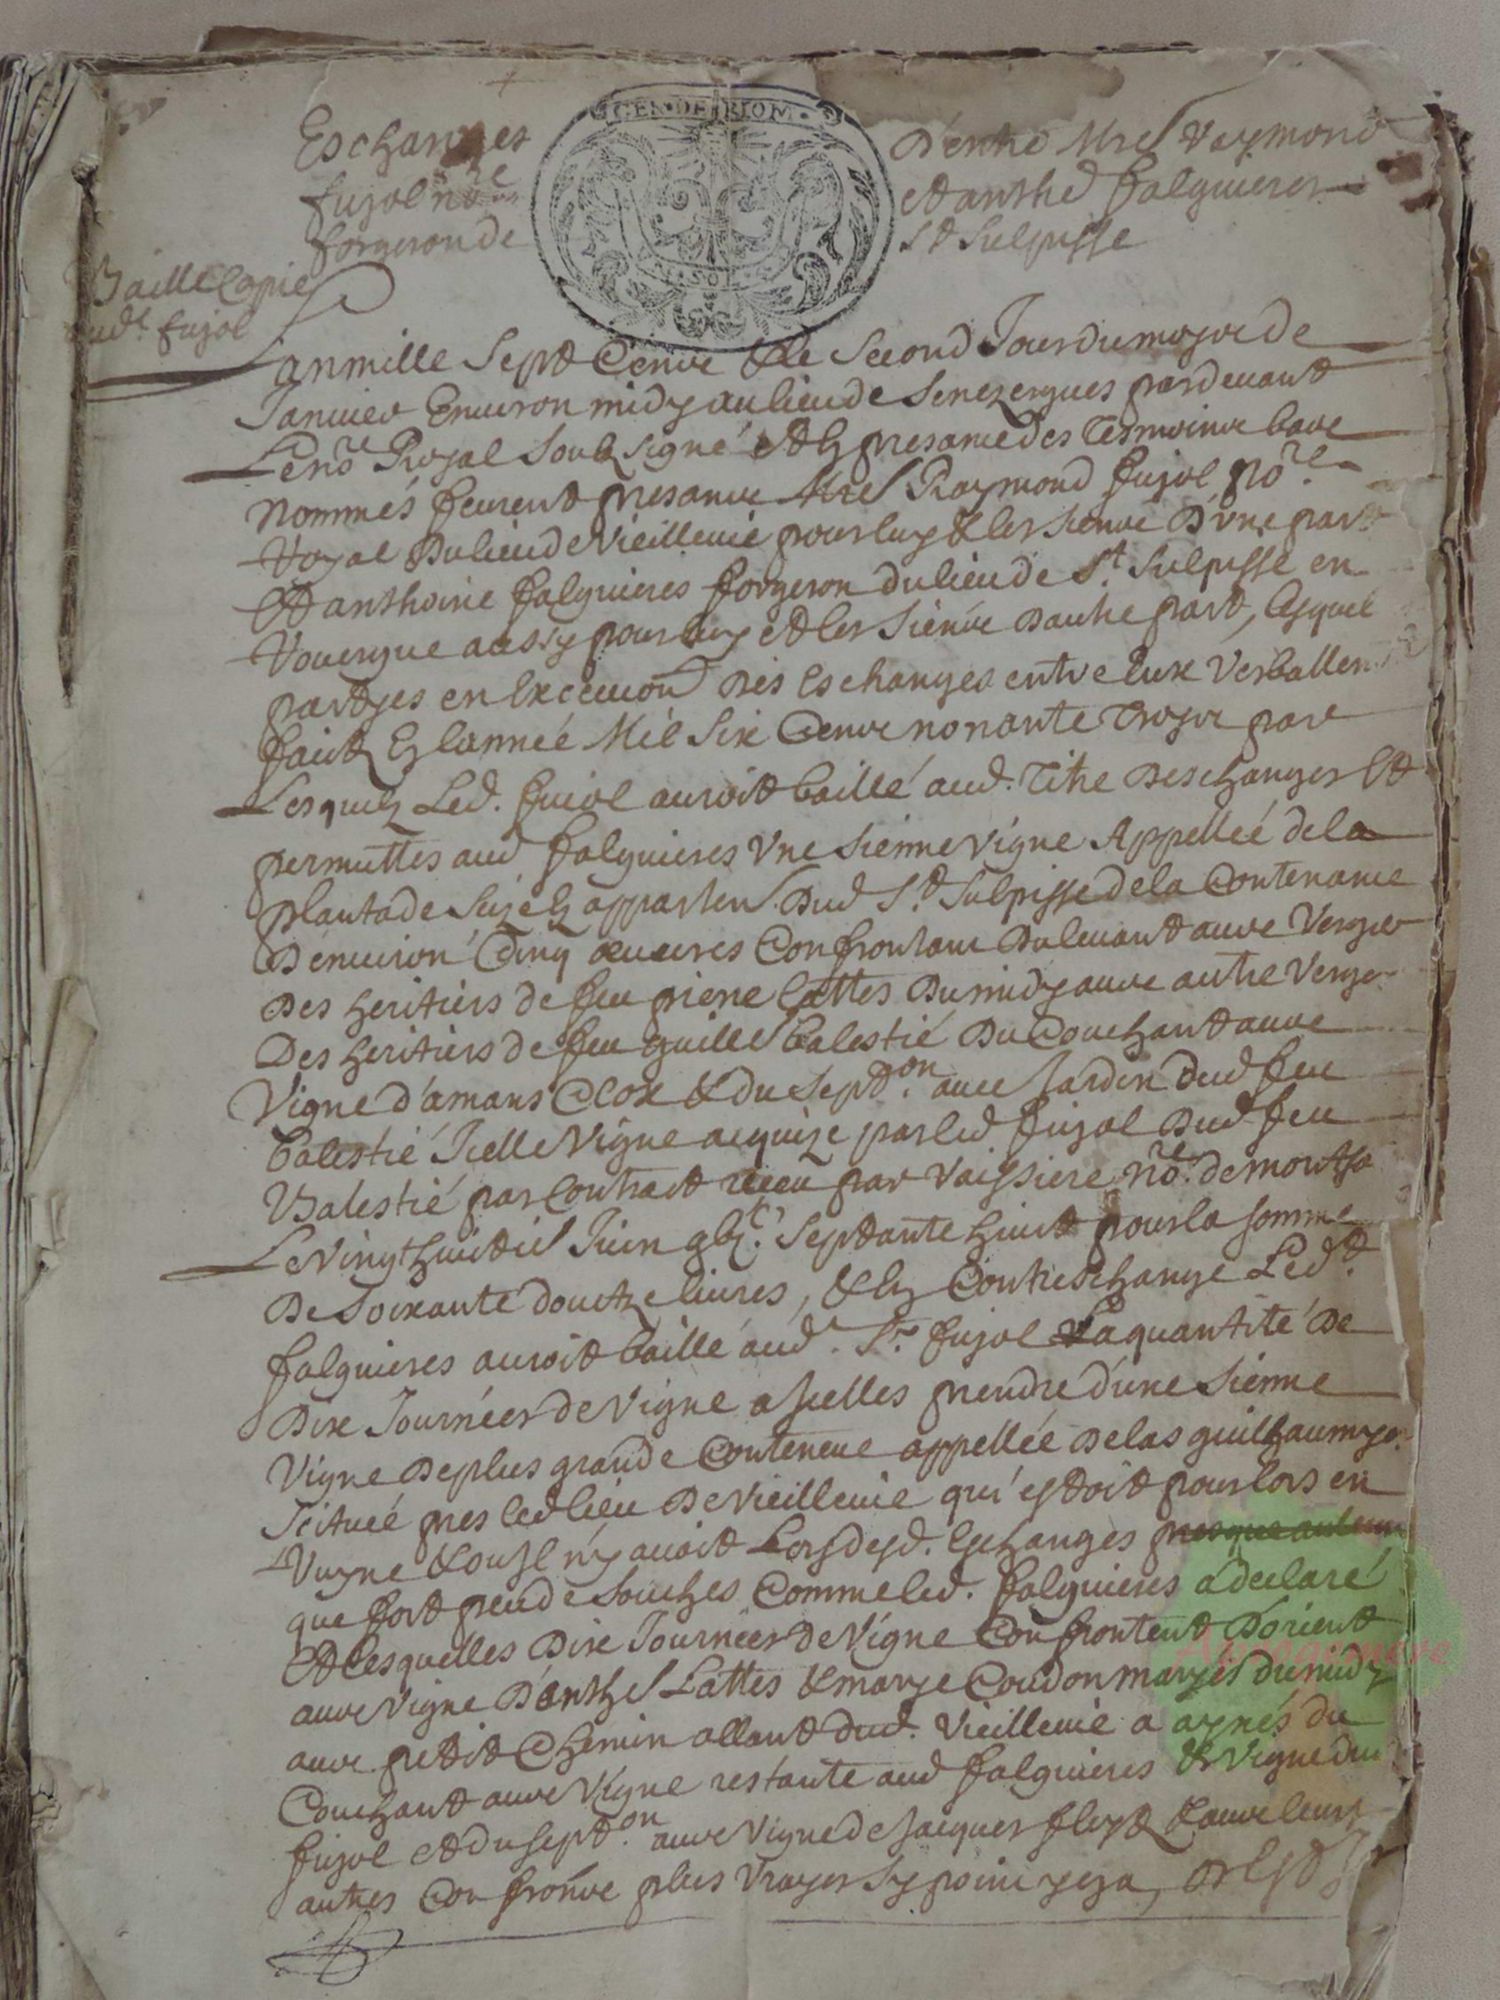 GEN·DE RIOM·
Eschanges d'entre Mre Raymond
fujol nore et anthe falguieres
forgeron de St Sulpisse
Baillé Copie
aud. fujol
Lan mille sept Cens & le second Jour du moys de
Janvier Environ midy au lieu de Senezergues par devant
Le nore Royal Soubsigné et en presance des Tesmoins bas
nommés feurent presans Mre Raymond fujol nore
Royal du lieu de Vieillevie pour luy & les siens d'une part
Et anthoine falguieres forgeron du lieu de St Sulpisse en
Rouergue aussy pour luy et les siens d'autre part, lesquel
partyes en Execution des Eschanges entre Eux Verballem
faits En lannée Mil Six Cens nonante troys par
Lesquels Led. fujol auroit baillé aud. Titre d'eschanges Et
permuttes aud falguieres Une sienne vigne Appellée de la
plantade size En apparten. dud St Sulpisse de la Contenance
D'environ Cinq œuvres Confrontant du levant avec Verger
des heritiers de feu pierre Lattes du midy avec autre Verger
Des heritiers de feu guille balestié du Couchant avec
Vigne d'amans Clox & du Septon. avec Jardin dud feu
balestié Icelle Vigne acquize par led fujol dud feu
Balestié par Contrait receu par Vaissiere nore de montsa
Le vingt huit Juin gbc. septante huit pour la somme
De soixante doutze livres, & En Contreschange Ledt
falguieres auroit baillé aud. Sr. fujol La quantité de
Dix Journées de Vigne a Icelles prendre d'une sienne
Vigne de plus grande Contenue appellée de las guilhaumyes
scituée pres led lieu de Vieillevie qui estoit pour lors en
Ruyne & ou Il n'y avoit Lors desd. Eschanges presque
que fort peu de souches Comme led. falguieres a declaré
Et lesquelles Dix Journées de Vigne Confrontent d'orient
avec Vigne d'anthe Lattes & marye Coudon maryés du midy
avec petit Chemin allant dud. Vieillevie a aynés du
Couchant avec Vigne restante aud falguieres & Vigne dud
fujol et du septon. avec Vigne de Jacques fleyt & avec leurs
autres Confrons plus Vrayes sy poinct y en a,